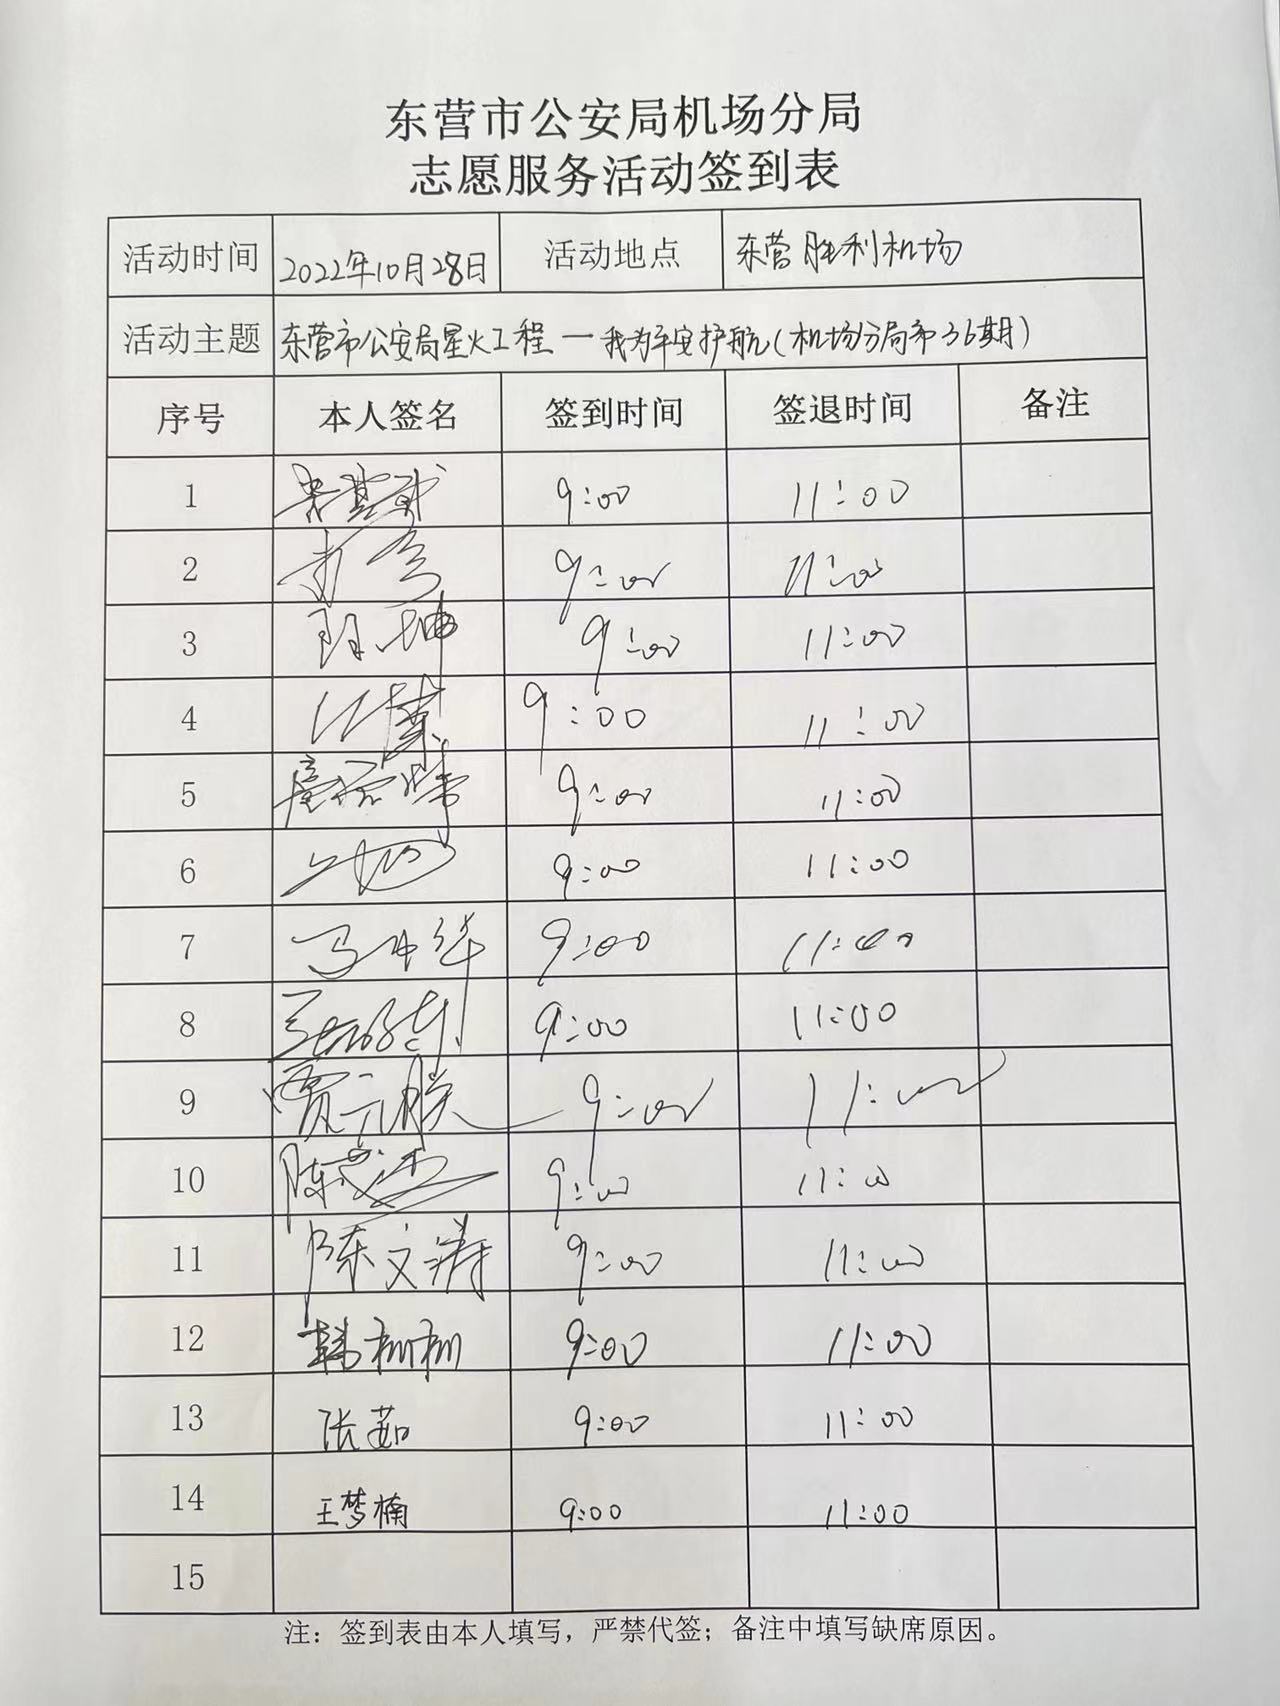 东营市公安局机场分局
志愿服务活动签到表
活动时间 2022年10月28日 活动地点 东营胜利机场
活动主题 东营市公安局星火工程一我为平安护航(机场分局第36期)
序号 本人签名 签到时间 签退时间 备注
1 9:00 11:00
2 9:00 11:00
3 坤 9:00 11:00
4 9:00 11:00
5 9:00 11:00
6 9:00 11:00
7 马中华 9:00 11:00
8 9:00 11:00
9 贾元胜 9:00 11:00
10 陈 9:00 11:00
11 陈文涛 9:00 11:00
12 韩栅栅 9:00 11:00
13 张茹 9:00 11:00
14 王梦楠 9:00 11:00
15
注：签到表由本人填写，严禁代签；备注中填写缺席原因。